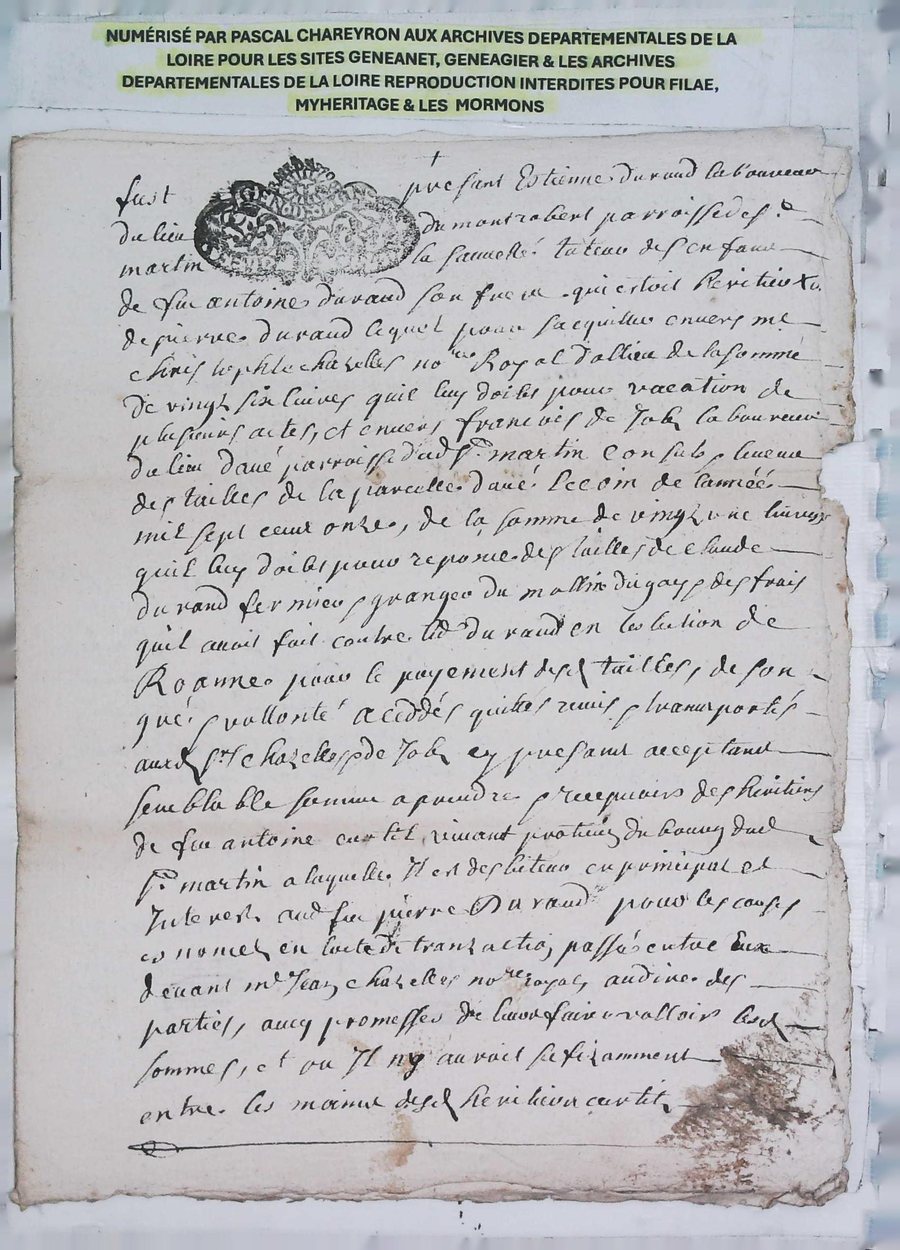 NUMÉRISÉ PAR PASCAL CHAREYRON AUX ARCHIVES DEPARTEMENTALES DE LA
LOIRE POUR LES SITES GENEANET, GENEAGIER & LES ARCHIVES
DEPARTEMENTALES DE LA LOIRE REPRODUCTION INTERDITES POUR FILAE,
MYHERITAGE & LES MORMONS
fust presant Estienne durand laboureur
du lieu du montrobert parroisse de St
martin la sauveté tuteur des enfans
de feu antoine durand son frere qui estoit heritier
de pierre durand lequel pour sacquitter envers me
christophle chazelles nore Royal dallieu de la somme
de vingt six livres quil luy doibt pour vacation de
plusieurs actes, et envers francois de Job laboureur
du lieu davé parroisse dud St martin consul leveur
des tailles de la parcelle davé Lecoin de lannéé
mil sept cent onze, de la somme de vingt une livres
quil luy doibt pour reponce des tailles de claude
durand fermier granger du mollin du gay des frais
quil avoit fait contre led durand en leslection de
Roanne pour le payement desd tailles, de son
gré vollonté a ceddés quittés remis transportés
auxd Srs chazelles de Job cy presant acceptant
semblable somme a prendre recepvoir des heritiers
de feu antoine curtil vivant du bourg dud
St martin a laquelle Il est debiteur en principal et
Interest aud feu pierre Durand pour les causes
es nomes en lacte de tranzaction passés entre Eux
devant me Jean chazelles nore royal, audire des
parties, avec promesses de leur faire valloir lesd
sommes, et ou Il ny auroit sufizamment
entre les mains desd heritiers curtil